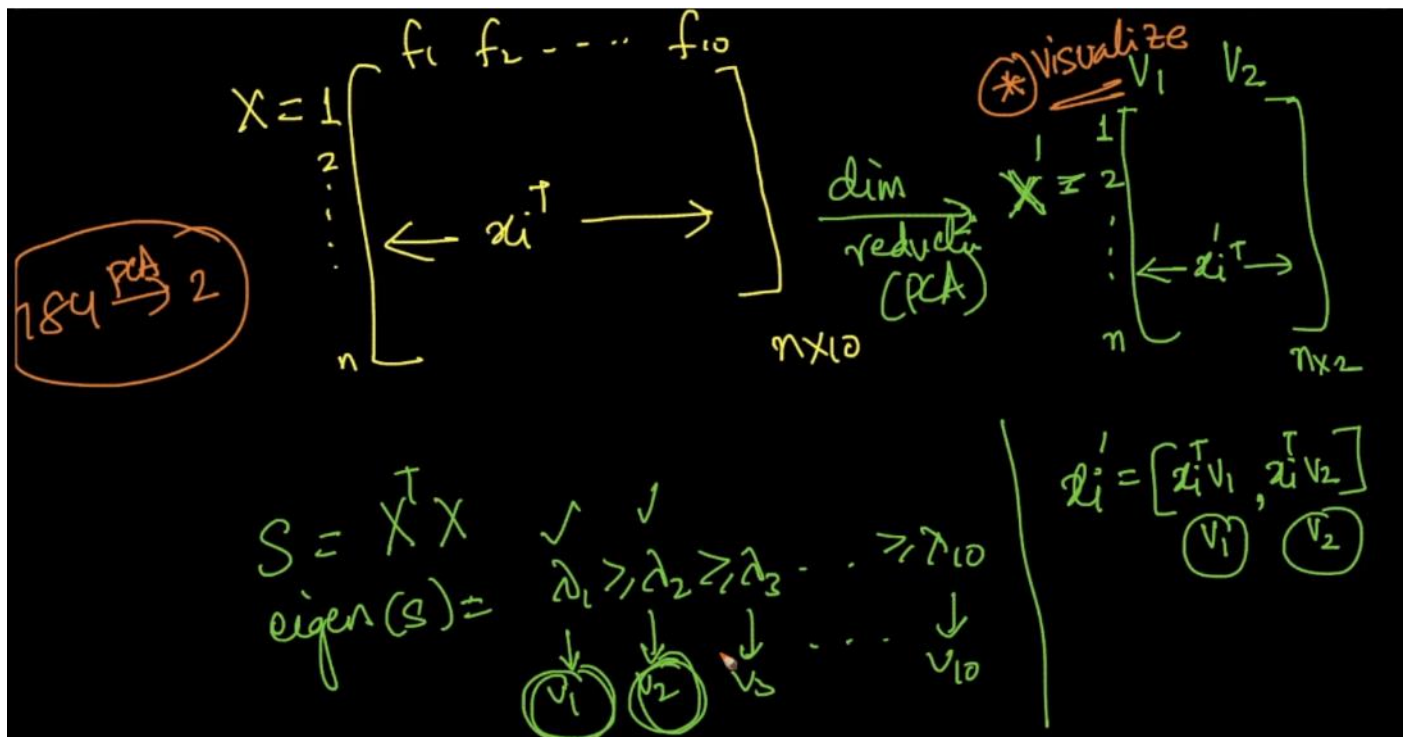 f₁ f₂ ----.. f₁₀
X = 1
2
⋮
n
← xᵢᵀ →
n×10
784 PCA→ 2
dim
reducti
(PCA)
* visualize
V₁ V₂
X' = 1
2
⋮
n
← xᵢ'ᵀ →
n×2
S = XᵀX ✓ ✓
eigen(S) = λ₁ ≥ λ₂ ≥ λ₃ . . . ≥ λ₁₀
↓ ↓ ↓ ↓
V₁ V₂ V₃ . . . V₁₀
xᵢ' = [xᵢᵀV₁, xᵢᵀV₂]
V₁ V₂